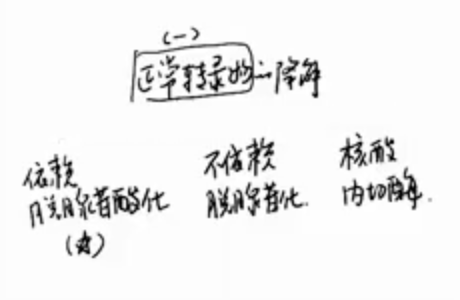 (一)
正常转录物的降解
依赖
脱腺苷酸化
(主)
不依赖
脱腺苷化.
核酸
内切酶.